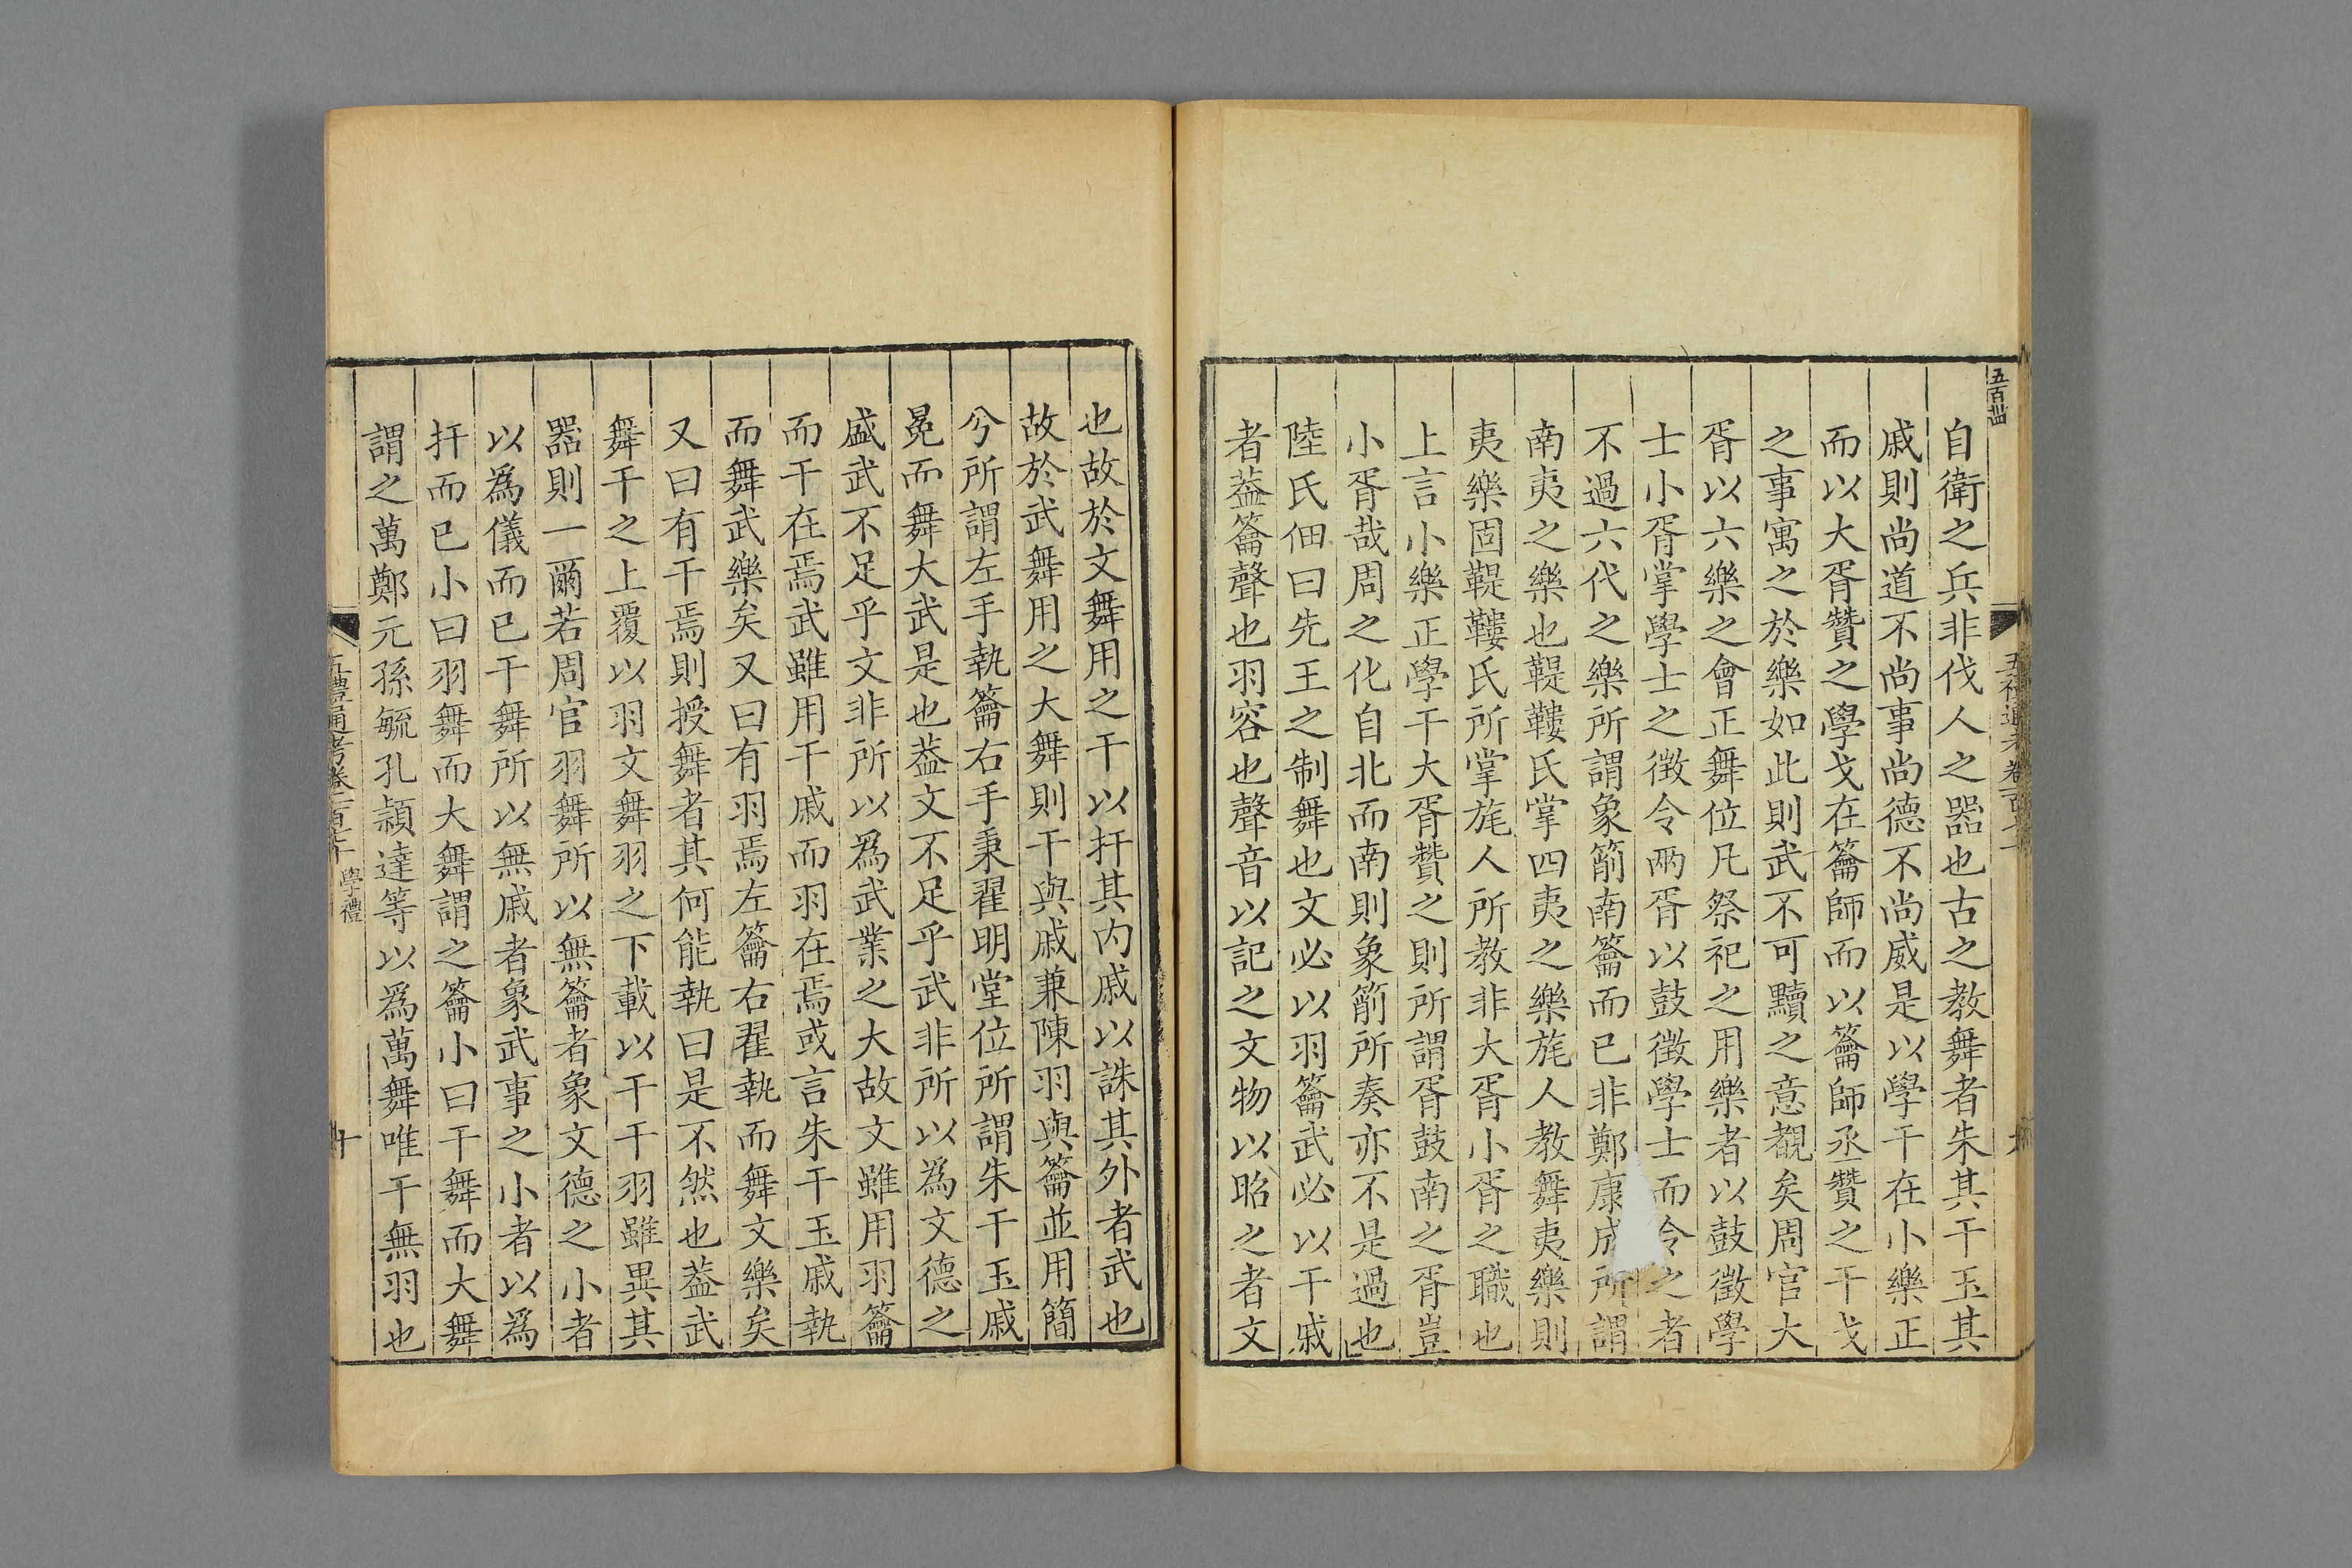 自衛之兵非伐人之器也古之教舞者朱其干玉其
戚則尚道不尚事尚德不尚威是以學干在小樂正
而以大胥贊之學戈在籥師而以籥師丞贊之干戈
之事寓之於樂如此則武不可黷之意覩矣周官大
胥以六樂之會正舞位凡祭祀之用樂者以鼓徵學
士小胥掌學士之徵令兩胥以鼓徵學士而令之者
不過六代之樂所謂象箾南籥而已非鄭康成所謂
南夷之樂也鞮鞻氏掌四夷之樂旄人教舞夷樂則
夷樂固鞮鞻氏所掌旄人所教非大胥小胥之職也
上言小樂正學干大胥贊之則所謂胥鼓南之胥豈
小胥哉周之化自北而南則象箾所奏亦不是過也
陸氏佃曰先王之制舞也文必以羽籥武必以干戚
者葢籥聲也羽容也聲音以記之文物以昭之者文
也故於文舞用之干以扞其內戚以誅其外者武也
故於武舞用之大舞則干與戚兼陳羽與籥並用簡
兮所謂左手執籥右手秉翟明堂位所謂朱干玉戚
冕而舞大武是也葢文不足乎武非所以為文德之
盛武不足乎文非所以為武業之大故文雖用羽籥
而干在焉武雖用干戚而羽在焉或言朱干玉戚執
而舞武樂矣又曰有羽焉左籥右翟執而舞文樂矣
又曰有干焉則授舞者其何能執曰是不然也葢武
舞干之上覆以羽文舞羽之下載以干干羽雖異其
器則一爾若周官羽舞所以無籥者象文德之小者
以為儀而已干舞所以無戚者象武事之小者以為
扞而已小曰羽舞而大舞謂之籥小曰干舞而大舞
謂之萬鄭元孫毓孔頴達等以為萬舞唯干無羽也
五禮通考卷一百七十 學禮
十